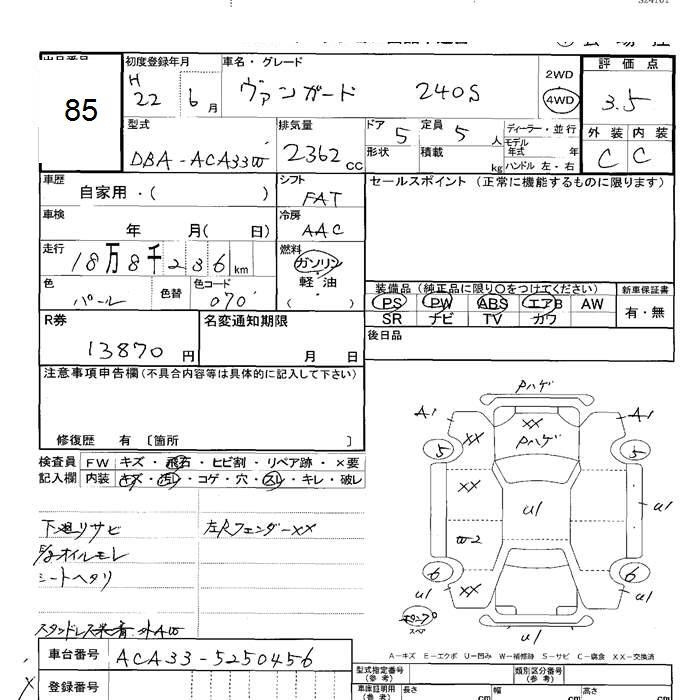 85
初度登録年月
H 22 6月
車名・グレード
ヴァンガード 240S
2WD
4WD
評価点
3.5
型式
DBA-ACA33W
排気量
2362 CC
ドア 5
形状
定員 5 人
積載 kg
ディーラー・並行
モデル年式 年
ハンドル 左・右
外装 内装
C C
車歴
自家用・( )
シフト
FAT
セールスポイント (正常に機能するものに限ります)
車検
年 月( 日)
冷房
AAC
走行
18万8千236km
燃料
ガソリン
軽・油
( )
色
パール
色替
色コード
070
装備品 (純正品に限り○をつけてください)
新車保証書
PS PW ABS エアB AW
有・無
SR ナビ TV カワ
R券
13870円
名変通知期限
月 日
後日品
注意事項申告欄(不具合内容等は具体的に記入して下さい)
修復歴 有 〔箇所 〕
検査員記入欄
FW キズ・飛石・ヒビ割・リペア跡・×要
内装 キズ・汚レ・コゲ・穴・スレ・キレ・破レ
下廻リサビ 左Rフェンダー××
オイルモレ
シートヘタリ
Pハゲ
A1 A1
×× ×× Pハゲ
5 5
×× U1 U1
W-2
6 6
U1 ×× U1
スペア
U1
A-キズ E-エクボ U-凹み W-補修跡 S-サビ C-腐食 XX-交換済
車台番号 ACA33-5250456
登録番号
型式指定番号(参考) 類別区分番号(参考)
車庫証明用(参考) 長さ cm 幅 cm 高さ cm